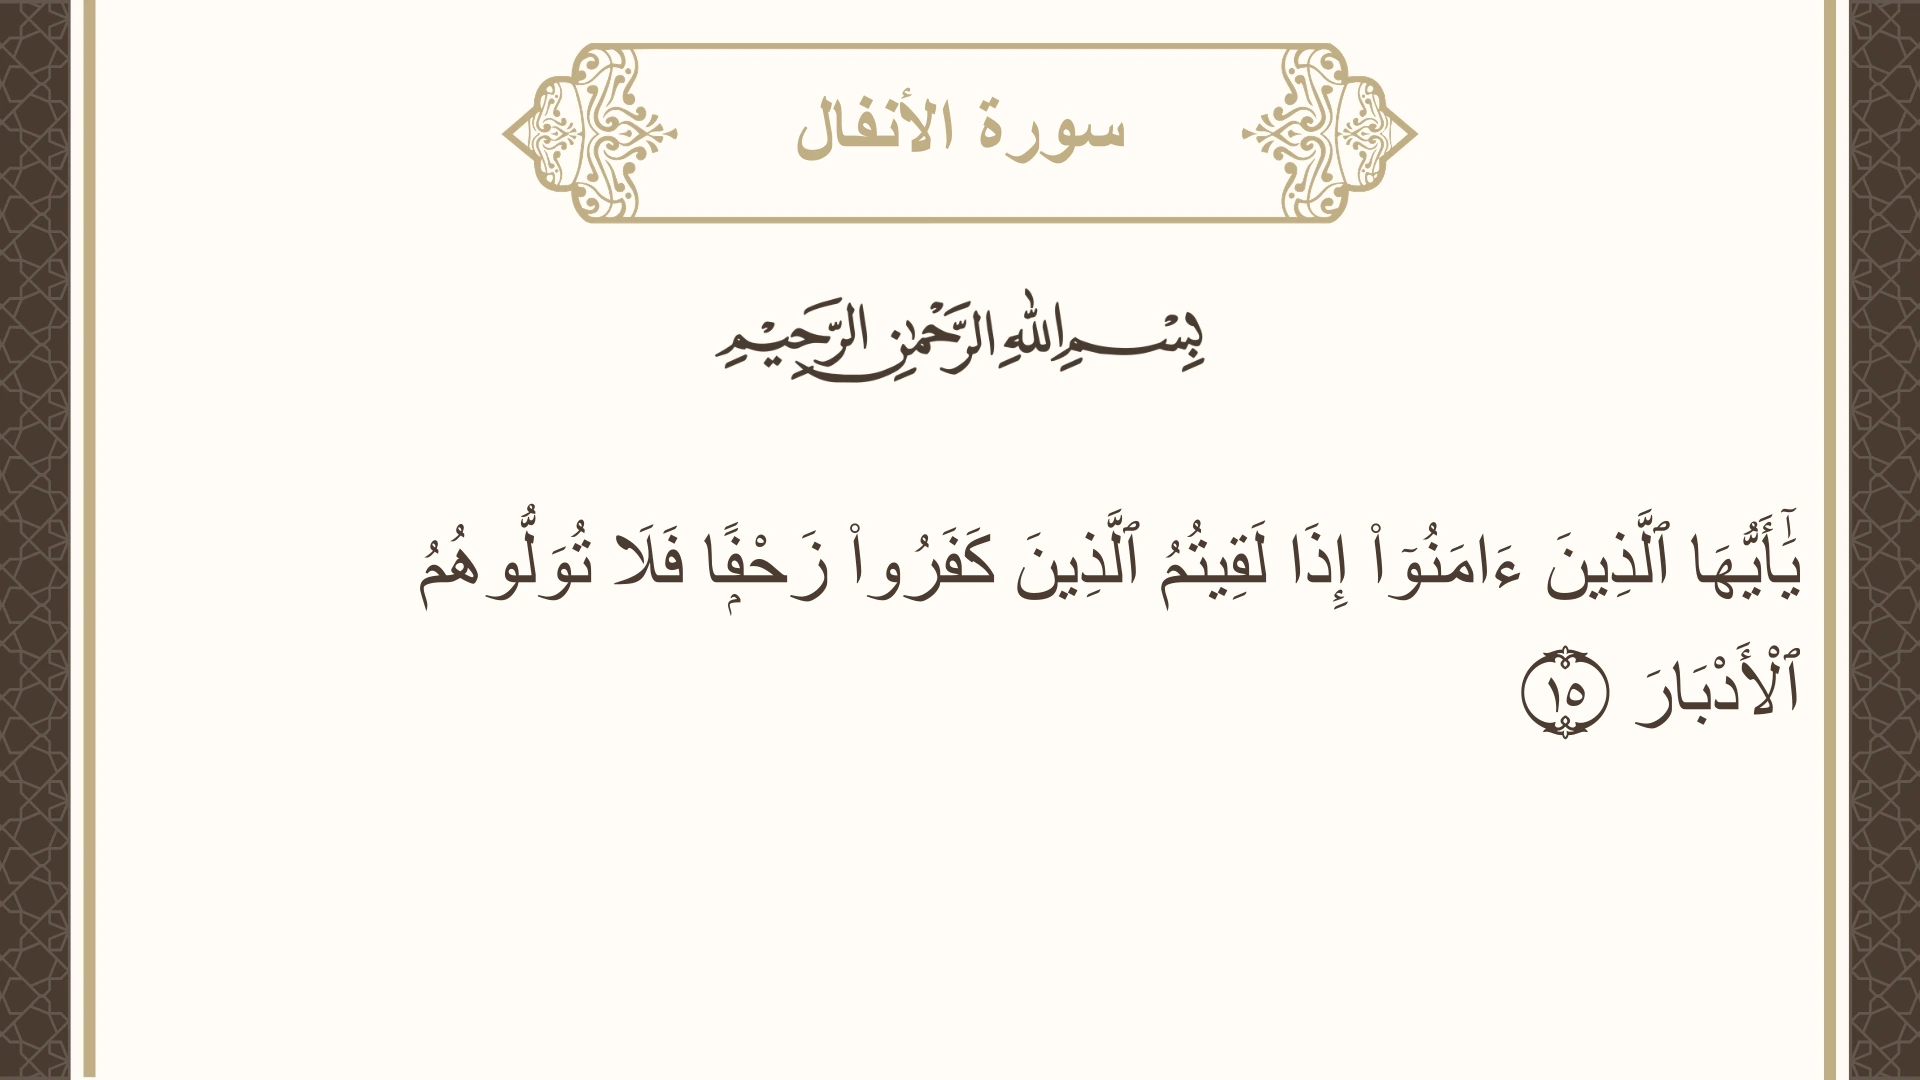 سورة الأنفال
بِسْمِ اللهِ الرَّحْمٰنِ الرَّحِيْمِ
يَٰٓأَيُّهَا ٱلَّذِينَ ءَامَنُوٓا۟ إِذَا لَقِيتُمُ ٱلَّذِينَ كَفَرُوا۟ زَحْفًۭا فَلَا تُوَلُّوهُمُ
ٱلْأَدْبَارَ ١٥